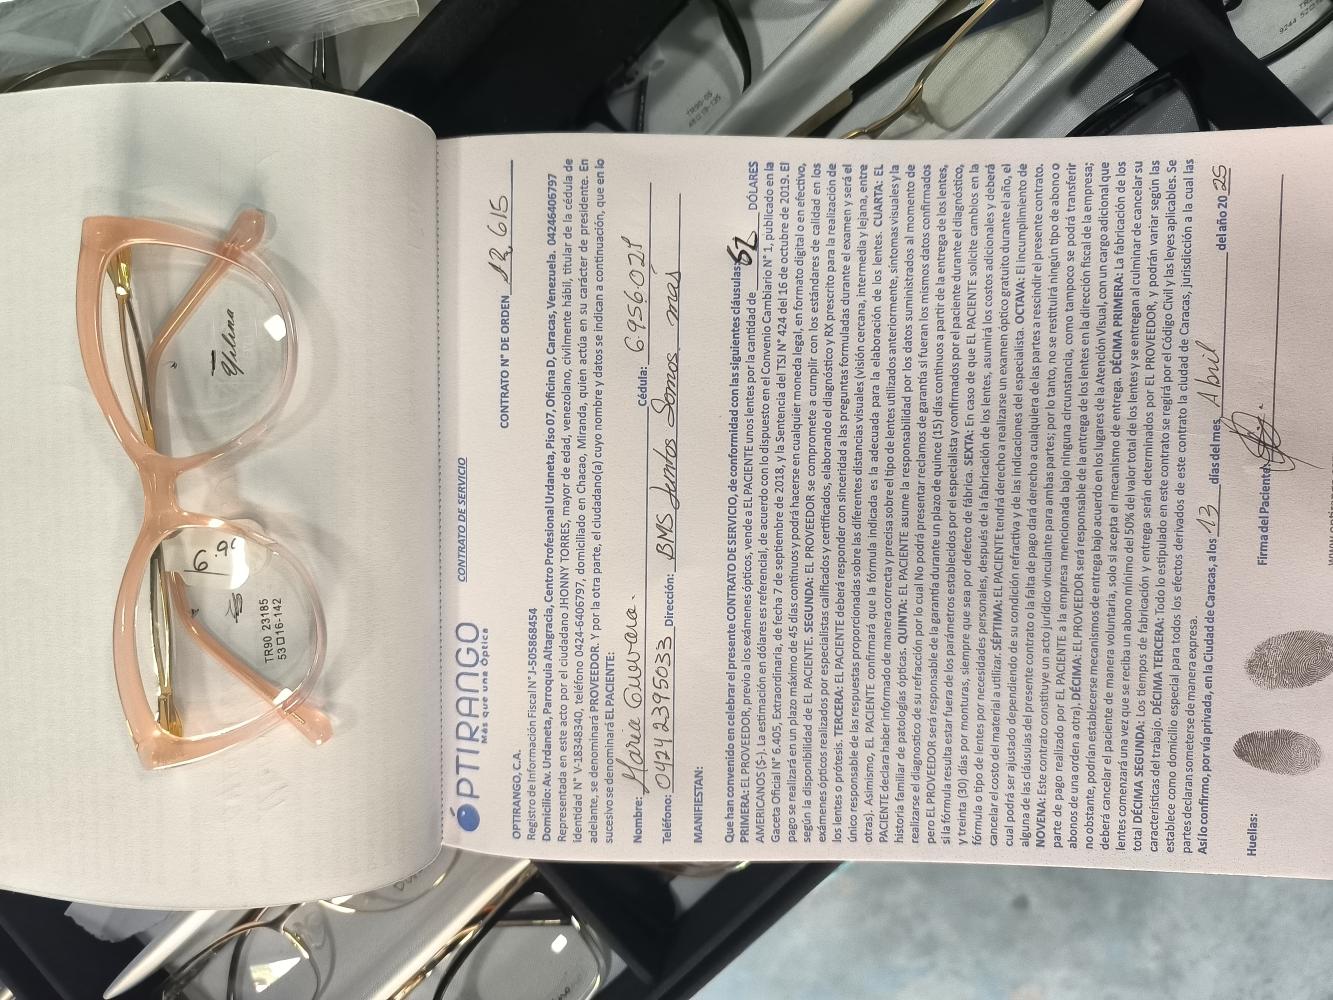 ÓPTIRANGO
Más que una Óptica
CONTRATO DE SERVICIO
CONTRATO N° DE ORDEN 12,615
OPTIRANGO, C.A.
Registro de Información Fiscal N° J-505568454
Domicilio: Av. Urdaneta, Parroquia Altagracia, Centro Profesional Urdaneta, Piso 07, Oficina D, Caracas, Venezuela. 04246406797
Representada en este acto por el ciudadano JHONNY TORRES, mayor de edad, venezolano, civilmente hábil, titular de la cédula de
identidad N° V-18348340, teléfono 0424-6406797, domiciliado en Chacao, Miranda, quien actúa en su carácter de presidente. En
adelante, se denominará PROVEEDOR. Y por la otra parte, el ciudadano(a) cuyo nombre y datos se indican a continuación, que en lo
sucesivo se denominará EL PACIENTE:
Nombre: Maria Guevara. Cédula: 6.956.028
Teléfono: 04242395033 Dirección: BMS Juntos Somos más
MANIFIESTAN:
Que han convenido en celebrar el presente CONTRATO DE SERVICIO, de conformidad con las siguientes cláusulas:
PRIMERA: EL PROVEEDOR, previo a los exámenes ópticos, vende a EL PACIENTE unos lentes por la cantidad de 62 DÓLARES
AMERICANOS ($-). La estimación en dólares es referencial, de acuerdo con lo dispuesto en el Convenio Cambiario N° 1, publicado en la
Gaceta Oficial N° 6.405, Extraordinaria, de fecha 7 de septiembre de 2018, y la Sentencia del TSJ N° 424 del 16 de octubre de 2019. El
pago se realizará en un plazo máximo de 45 días continuos y podrá hacerse en cualquier moneda legal, en formato digital o en efectivo,
según la disponibilidad de EL PACIENTE. SEGUNDA: EL PROVEEDOR se compromete a cumplir con los estándares de calidad en los
exámenes ópticos realizados por especialistas calificados y certificados, elaborando el diagnóstico y RX prescrito para la realización de
los lentes o prótesis. TERCERA: EL PACIENTE deberá responder con sinceridad a las preguntas formuladas durante el examen y será el
único responsable de las respuestas proporcionadas sobre las diferentes distancias visuales (visión cercana, intermedia y lejana, entre
otras). Asimismo, EL PACIENTE confirmará que la fórmula indicada es la adecuada para la elaboración de los lentes. CUARTA: EL
PACIENTE declara haber informado de manera correcta y precisa sobre el tipo de lentes utilizados anteriormente, síntomas visuales y la
historia familiar de patologías ópticas. QUINTA: EL PACIENTE asume la responsabilidad por los datos suministrados al momento de
realizarse el diagnostico de su refracción por lo cual No podrá presentar reclamos de garantía si fueran los mismos datos confirmados
pero EL PROVEEDOR será responsable de la garantía durante un plazo de quince (15) días continuos a partir de la entrega de los lentes,
si la fórmula resulta estar fuera de los parámetros establecidos por el especialista y confirmados por el paciente durante el diagnóstico,
y treinta (30) días por monturas, siempre que sea por defecto de fábrica. SEXTA: En caso de que EL PACIENTE solicite cambios en la
fórmula o tipo de lentes por necesidades personales, después de la fabricación de los lentes, asumirá los costos adicionales y deberá
cancelar el costo del material a utilizar. SÉPTIMA: EL PACIENTE tendrá derecho a realizarse un examen óptico gratuito durante el año, el
cual podrá ser ajustado dependiendo de su condición refractiva y de las indicaciones del especialista. OCTAVA: El incumplimiento de
alguna de las cláusulas del presente contrato o la falta de pago dará derecho a cualquiera de las partes a rescindir el presente contrato.
NOVENA: Este contrato constituye un acto jurídico vinculante para ambas partes; por lo tanto, no se restituirá ningún tipo de abono o
parte de pago realizado por EL PACIENTE a la empresa mencionada bajo ninguna circunstancia, como tampoco se podrá transferir
abonos de una orden a otra). DÉCIMA: EL PROVEEDOR será responsable de la entrega de los lentes en la dirección fiscal de la empresa;
no obstante, podrían establecerse mecanismos de entrega bajo acuerdo en los lugares de la Atención Visual, con un cargo adicional que
deberá cancelar el paciente de manera voluntaria, solo si acepta el mecanismo de entrega. DÉCIMA PRIMERA: La fabricación de los
lentes comenzará una vez que se reciba un abono mínimo del 50% del valor total de los lentes y se entregan al culminar de cancelar su
total DÉCIMA SEGUNDA: Los tiempos de fabricación y entrega serán determinados por EL PROVEEDOR, y podrán variar según las
características del trabajo. DÉCIMA TERCERA: Todo lo estipulado en este contrato se regirá por el Código Civil y las leyes aplicables. Se
establece como domicilio especial para todos los efectos derivados de este contrato la ciudad de Caracas, jurisdicción a la cual las
partes declaran someterse de manera expresa.
Así lo confirmo, por vía privada, en la Ciudad de Caracas, a los 13 días del mes Abril del año 2025
Huellas:
Firma del Paciente:
TR90 23185
53□16-142
TR90-05
48□19-135
9244